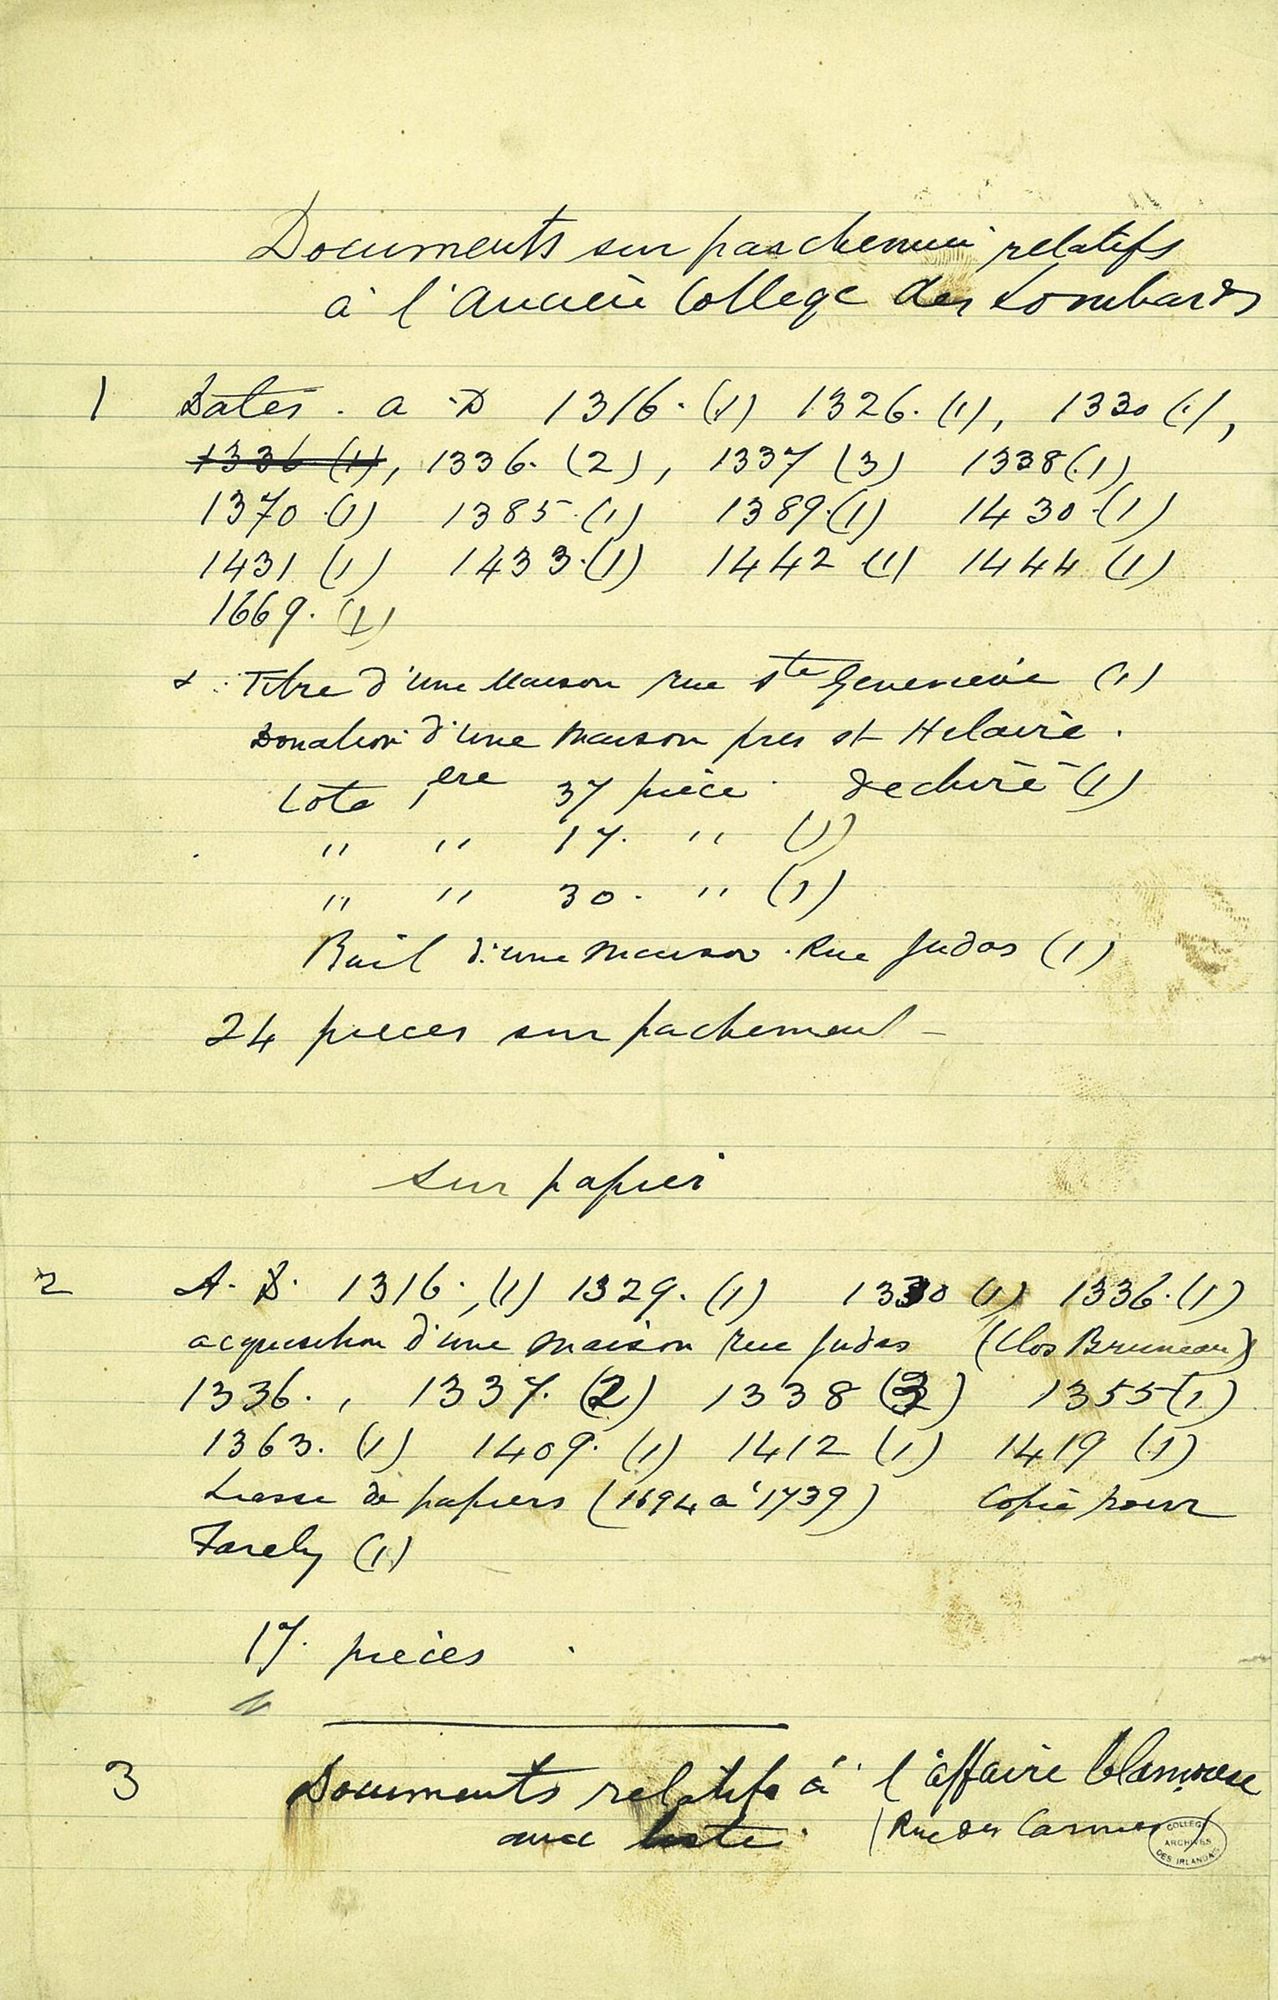 Documents sur parchemin relatifs
à l'ancien College des Lombards
1 Dates. a.D 1316. (1) 1326. (1), 1330 (1),
1336 (1), 1336. (2), 1337 (3) 1338 (1)
1370 (1) 1385. (1) 1389. (1) 1430. (1)
1431 (1) 1433. (1) 1442 (1) 1444 (1)
1669. (1)
Titre d'une Maison rue Ste Genevieve (1)
Donation d'une Maison pres st Hilaire.
Cote 1ere 37 pièce dechiré (1)
" " 17. " (1)
" " 30. " (1)
Bail d'une maison. Rue Judas (1)
24 pieces sur pachement -
sur papier
2 A. D. 1316., (1) 1329. (1) 1330 (1) 1336. (1)
acquisition d'une maison rue Judas (Clos Bruneau)
1336., 1337. (2) 1338 (3) 1355 (1)
1363. (1) 1409. (1) 1412 (1) 1419 (1)
Liasse de papiers (1694 a 1739) Copie pour
(1)
17. pieces.
3 Documents relatifs à l'affaire
avec liste. (Rue des Carmes)
COLLEGE
ARCHIVES
DES IRLANDAIS